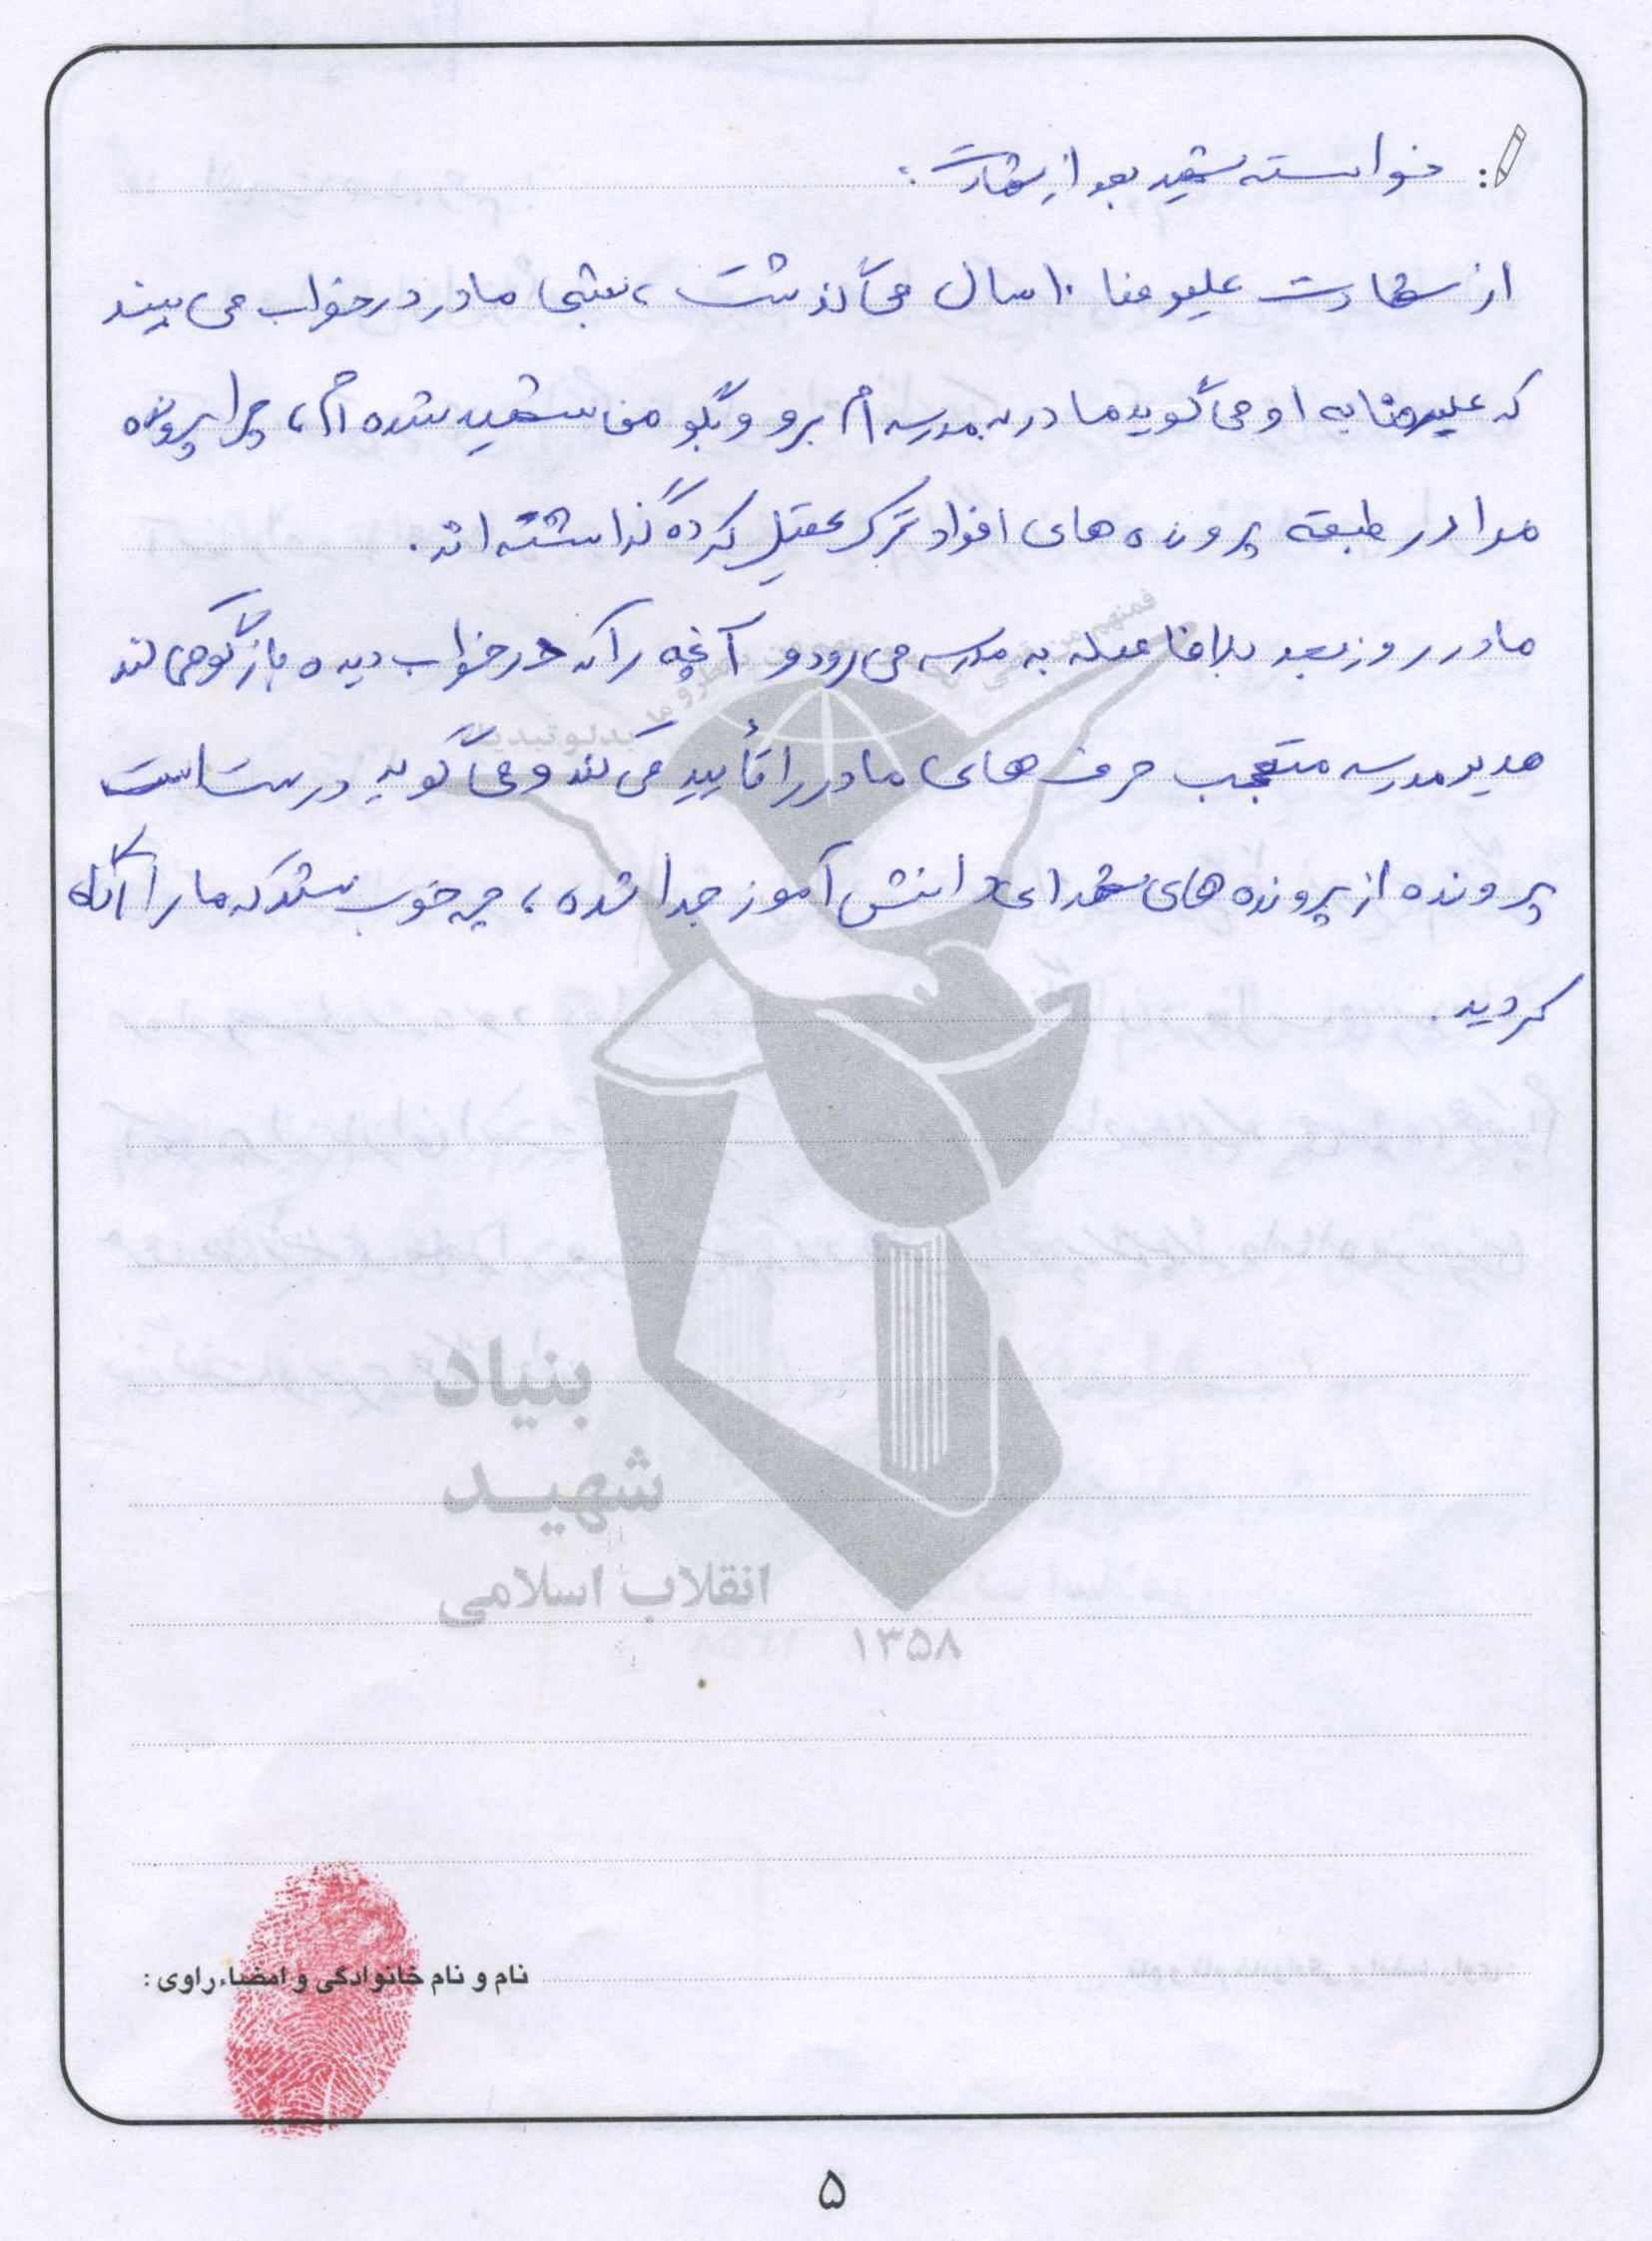 خواسته شهید بعد از شهادت:
از شهادت علیرضا ۱۰ سال می‌گذشت، شبی مادر در خواب می بیند
که علیرضا به او می‌گوید مادر به مدرسه ام برو و بگو من شهید شده ام، چرا پرونده
مرا در طبقه پرونده های افراد ترک تحصیل کرده گذاشته اند.
مادر روز بعد بلافاصله به مدرسه می رود و آنچه را که در خواب دیده بازگو می کند
مدیر مدرسه متعجب حرف های مادر را تأیید می کند و می گوید درست است
پرونده از پرونده های شهدای دانش آموز جدا شده، چه خوب شد که ما را آگاه
کردید.
بنیاد
شهید
انقلاب اسلامی
۱۳۵۸
نام و نام خانوادگی و امضاء راوی:
۵